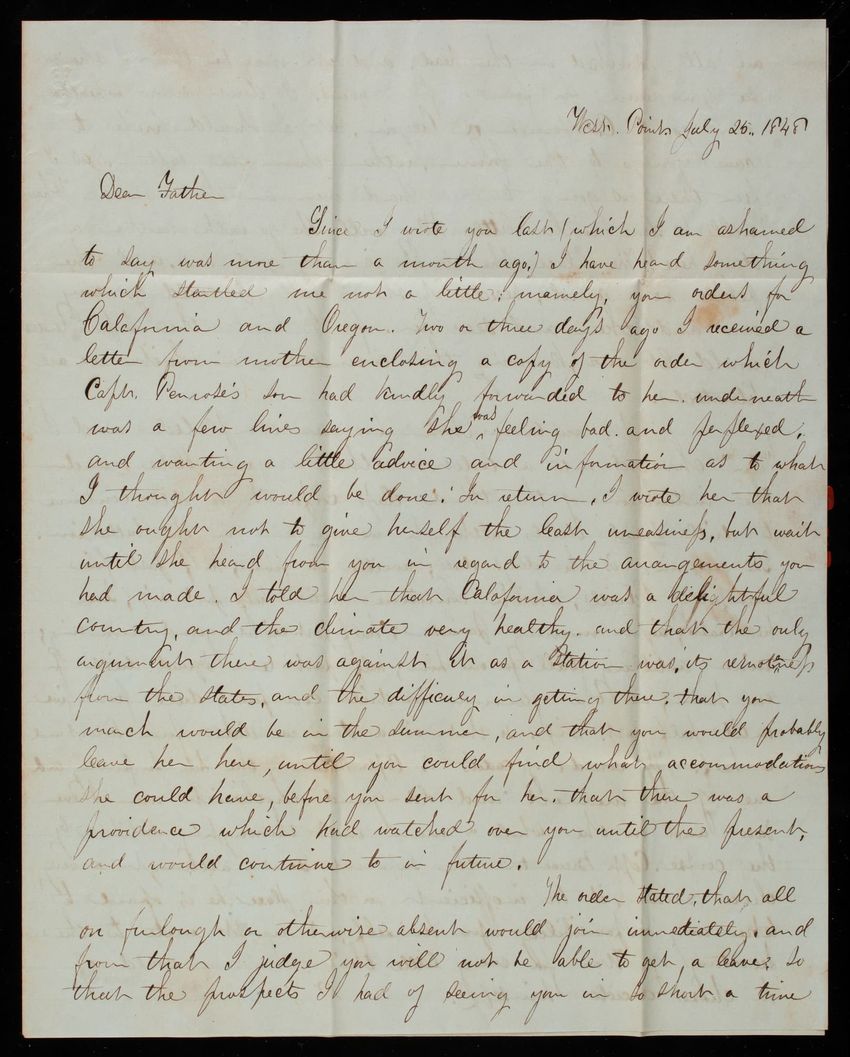 West. Point July 25.. 1848
Dear Father
Since I wrote you last (which I am ashamed
to say was more than a month ago.) I have heard something
which startled me not a little; namely, your orders for
Calafornia and Oregon. Two or three days ago I received a
letter from mother enclosing a copy of the order which
Capt. Penrose's son had kindly forwarded to her. underneath
was a few lines saying she was feeling bad. and perplexed,
and wanting a little advice and information as to what
I thought would be done. In return, I wrote her that
she ought not to give herself the least uneasiness, but wait
until she heard from you in regard to the arrangements you
had made. I told her that Calafornia was a delightful
country, and the climate very healthy. and that the only
argument there was against it as a station was, its remoteness
from the states, and the difficulty in getting there. that your
march would be in the summer, and that you would probably
leave her here, until you could find what accommodations
she could have, before you sent for her. that there was a
providence which had watched over you until the present,
and would continue to in future.
The order stated, that all
on furlough or otherwise absent would join immediately, and
from that I judge you will not be able to get a leave; so
that the prospects I had of seeing you in so short a time